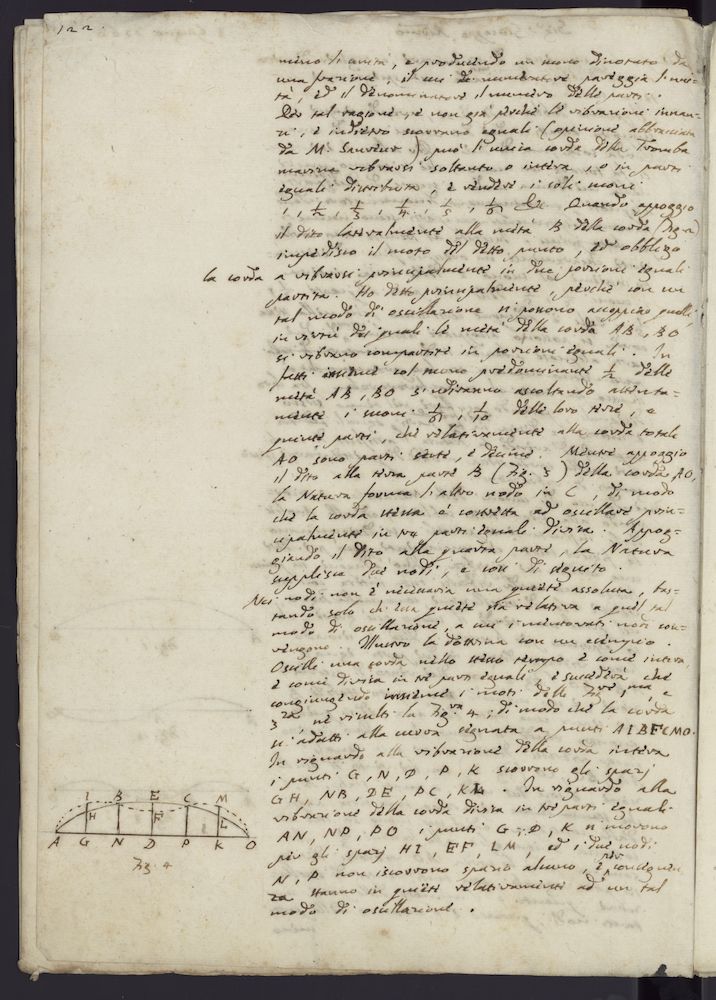 122.
mero l'unità, e producendo un suono dinotato da
una frazione, il cui di numeratore pareggia l'uni=
tà, ed il denominatore il numero delle parti.
Per tal ragione, e non già perchè le vibrazioni innan=
zi, e indietro sieno eguali (opinione abbracciata
da M. Sauveur) può l'unica corda della Tromba
marina vibrarsi soltanto o intera, o in parti
eguali distribuita, e rendere i soli suoni
1, 1/2, 1/3, 1/4, 1/5, 1/6 &c. Quando appoggio
il dito lateralmente alla metà B della corda (Fig. 2)
impedisco il moto del detto punto, ed obbligo
la corda a vibrarsi principalmente in due porzioni eguali
partita. Ho detto principalmente, perchè con un
tal modo di oscillazione si possono accoppiare quelli,
in virtù dei quali le metà della corda AB, BO
si vibrano compartite in porzioni eguali. In
fatti insieme col suono predominante 1/2 delle
metà AB, BO s'udiranno ascoltando attenta=
mente i suoni 1/6, 1/10 delle loro terze, e
quinte parti, che relativamente alla corda totale
AO sono parti seste, e decime. Mentre appoggio
il dito alla terza parte B (Fig. 3) della corda AO,
la Natura forma l'altro nodo in C, di modo
che la corda stessa è costretta ad oscillare prin=
cipalmente in tre parti eguali divisa. Appog=
giando il dito alla quarta parte, la Natura
supplisce due nodi, e così di seguito.
Nei nodi non è necessaria una quiete assoluta, bas=
tando solo che essa quiete sia relativa a quel tal
modo di oscillazione, a cui i mentovati nodi con=
vengono. Illustro la dottrina con un esempio.
Oscilli una corda nello stesso tempo e come intera,
e come divisa in tre parti eguali, e succederà che
congiungendo insieme i moti delle Fig.re, 1ma, e
3za ne risulti la Fig.ra 4, di modo che la corda
si adatti alla curva segnata a punti AIBFCMO.
In riguardo alla vibrazione della corda intera
i punti G, N, D, P, K scorrono gli spazj
GH, NB, DE, PC, KL. In riguardo alla
vibrazione della corda divisa in tre parti eguali
AN, NP, PO i punti G, D, K si movono
per gli spazj HI, EF, LM, ed i due nodi
N, P non iscorrono spazio alcuno, e per conseguen
za stanno in quiete relativamente ad un tal
modo di oscillazione.
I B E C M
H F L
A G N D P K O
Fig. 4